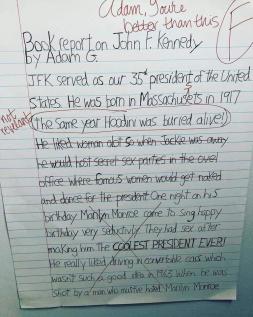 Adam, you're
better than this
F
Book report on John F. Kennedy
by Adam G.
JFK served as our 35th president of the United
States. He was born in Massachusets in 1917
not
relevant
(the same year Hoodini was buried alive)
He liked woman alot so when Jackie was away
he would host secret sex parties in the ovel
office where famous women would get naked
and dance for the president One night on his
birthday Marilyn Monroe came to sing happy
birthday very seductivly. They had sex after
making him The COOLEST PRESIDENT EVER!
He really liked driving in convertable cars which
wasn't such a good idea in 1963 when he was
shot by a man who mustve hated Marilyn Monroe